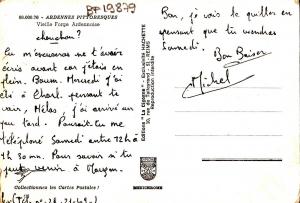 80.000.76 - ARDENNES PITTORESQUES
Vieille Forge Ardennaise
BP19879
chouchou ?
Tu m'excuseras ne t'avoir
écris avant car j'étais en
plein. Boum. Mercredi j'
étai à Charl. pensant te
voir, Hélas, j'ai arrivé un
peu tard. Pourrait-tu me
téléphoné Samedi entre 12h à
4h 30 mn. Pour savoir si tu
peux venir à
Collectionnez les Cartes Postales !
Bon, je vais te quitter en
pensant que tu viendras
Samedi.
Bon Baiser
Michel
Editions "La Cigogne" - Exclusivité HACHETTE
REIMS
Reproduction interdite
MEZICHROME